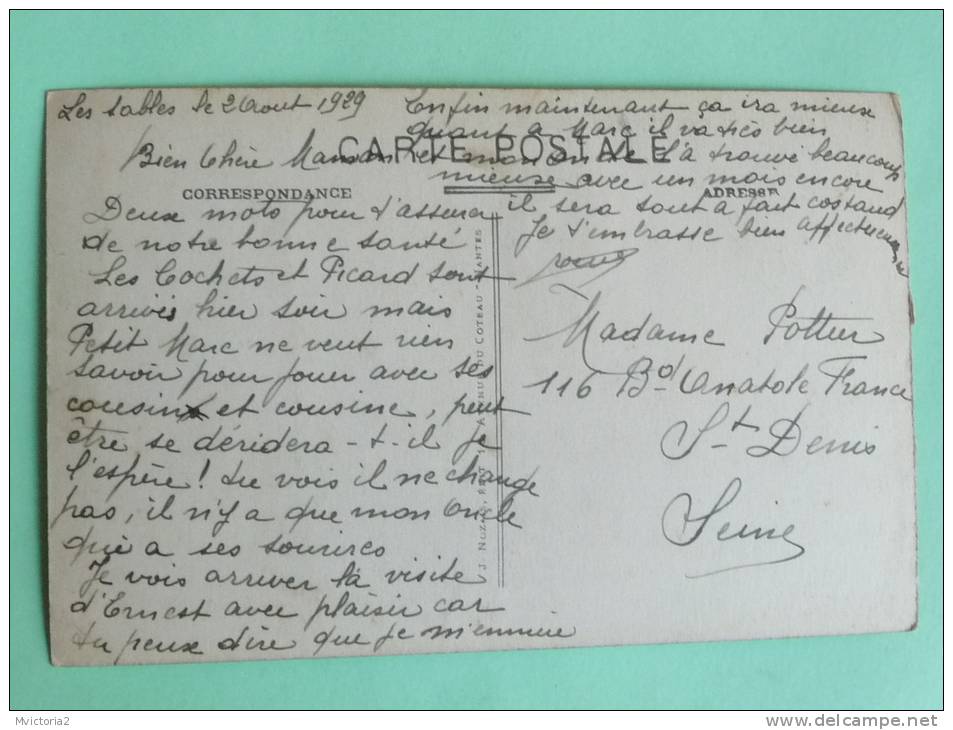 Les Sables le 2 Aout 1929
Bien Chère Maman
CARTE POSTALE
CORRESPONDANCE
ADRESSE
Deux mots pour t'assurer
de notre bonne santé
Les Cochets et Picard sont
arrivés hier soir mais
Petit Marc ne veut rien
savoir pour jouer avec ses
cousins et cousine, peut
être se déridera-t-il je
l'espère! tu vois il ne change
pas, il n'y a que mon Oncle
qui a ses sourires
Je vois arriver la visite
d'Ernest avec plaisir car
tu peux dire que je m'ennuie
Enfin maintenant ça ira mieux
quant a Marc il va très bien
mon oncle l'a trouvé beaucoup
mieux avec un mois encore
il sera tout a fait costaud
Je t'embrasse bien affectueusement
Madame Pottier
116 Bd Anatole France
St Denis
Seine
J. NOZAIS, AVENUE DU COTEAU - NANTES
Mvictoria2
www.delcampe.net